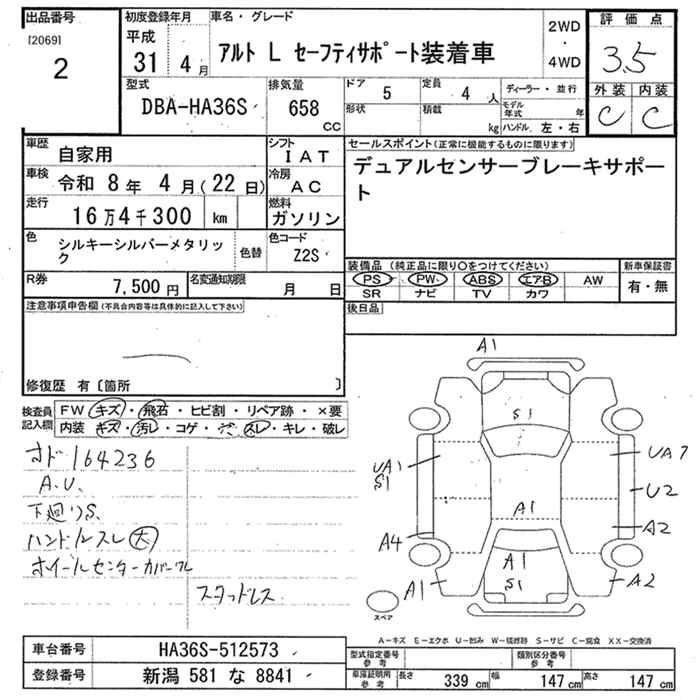 出品番号
[2069]
2
初度登録年月
平成
31 4 月
車名・グレード
アルト L セーフティサポート装着車
2WD
・
4WD
評価点
3.5
外装 内装
C C
型式
DBA-HA36S
排気量
658
CC
ドア
5
定員
4 人
形状
積載
kg
ディーラー・並行
モデル年式 年
ハンドル 左・右
車歴
自家用
シフト
I AT
車検
令和 8 年 4 月 (22 日)
冷房
AC
走行
16 万 4 千 300 km
燃料
ガソリン
色
シルキーシルバーメタリック
色替
色コード
Z2S
R券
7,500 円
名変通知期限
月 日
セールスポイント(正常に機能するものに限ります)
デュアルセンサーブレーキサポート
装備品 (純正品に限り○をつけてください)
PS PW ABS エアB AW
SR ナビ TV カワ
新車保証書
有・無
後日品
注意事項申告欄(不具合内容等は具体的に記入して下さい)
修復歴 有〔箇所 〕
検査員記入欄
FW キズ・飛石・ヒビ割・リペア跡・×要
内装 キズ・汚レ・コゲ・スレ・キレ・破レ
オド 164236
A.U.
下廻りS.
ハンドルスレ(大)
ホイールセンターカバー
スタッドレス
A1
S1
UA1
S1
UA7
U2
A1
A2
A4
A1
S1
A1
A2
スペア
A-キズ E-エクボ U-凹み W-補修跡 S-サビ C-腐食 XX-交換済
車台番号
HA36S-512573
登録番号
新潟 581 な 8841
型式指定番号
参考
類別区分番号
参考
車庫証明用
参考
長さ 339 cm
幅 147 cm
高さ 147 cm